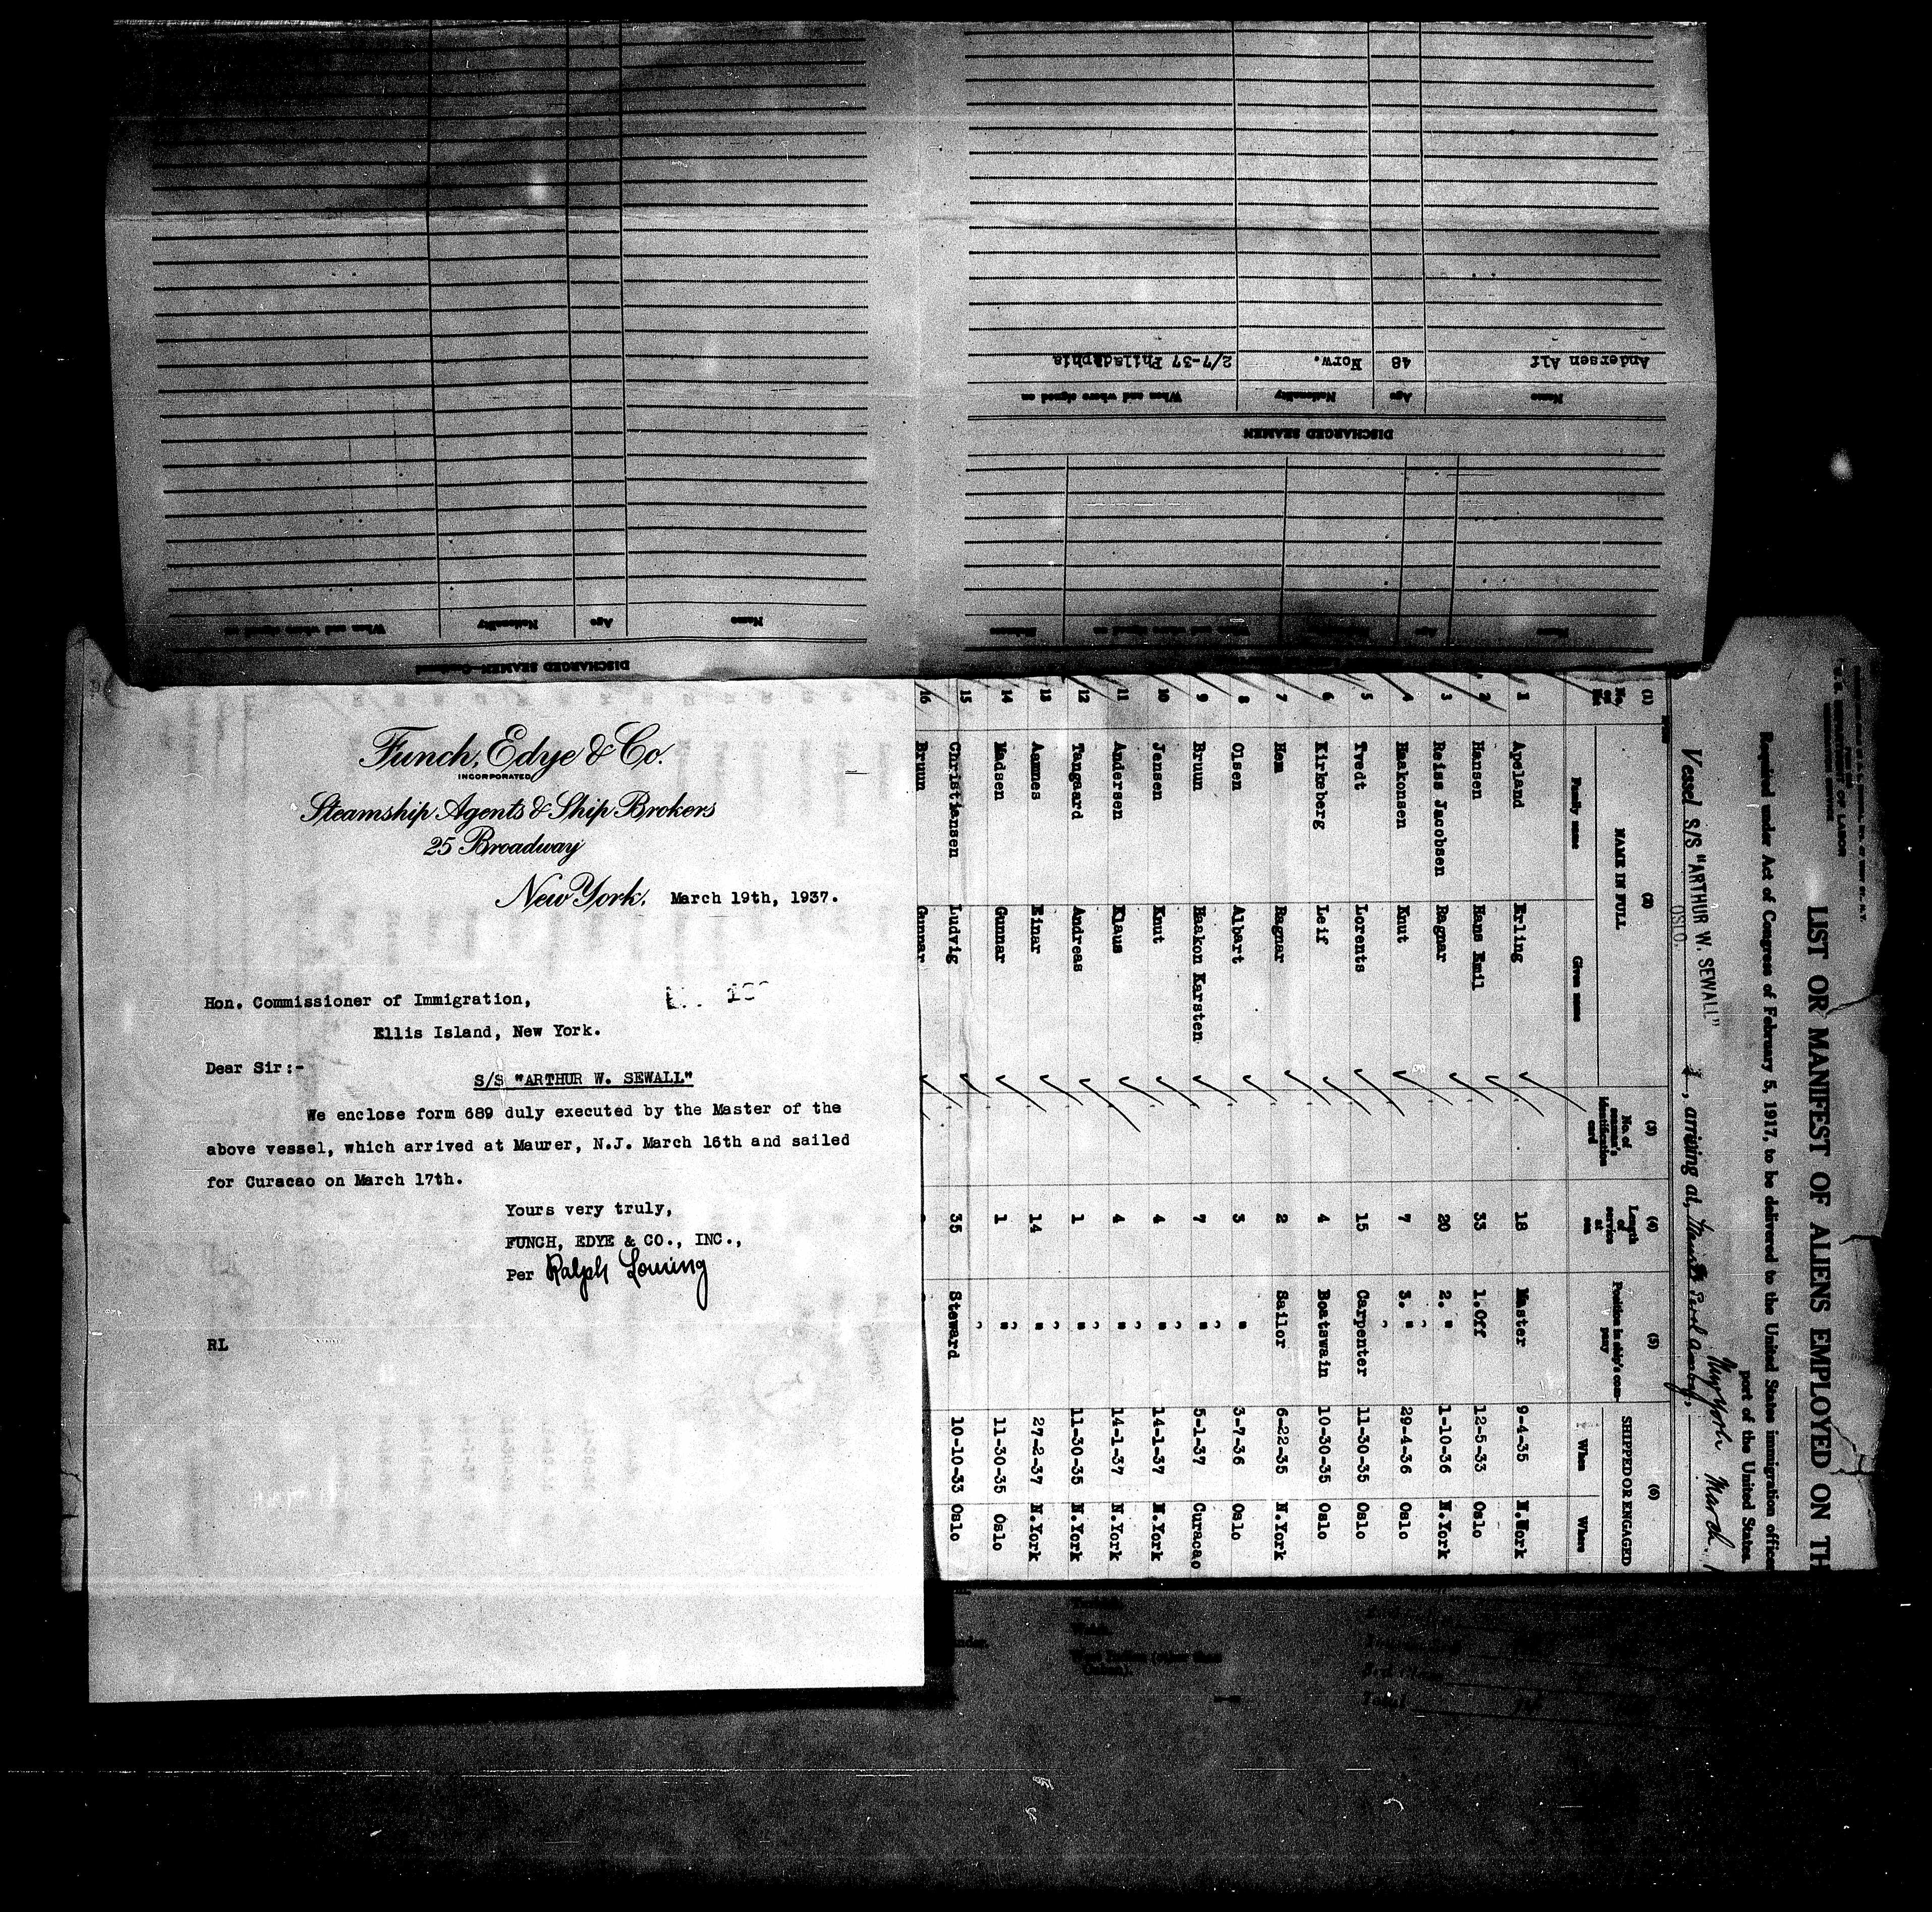 Andersen Alf 48 Norw. 2/7-37 Philadaphia
Name Age Nationality When and where signed on
DISCHARGED SEAMEN
Name Age Nationality When and where signed on
DISCHARGED SEAMEN—Continued
Funch, Edye & Co.
INCORPORATED
Steamship Agents & Ship Brokers
25 Broadway
New York, March 19th, 1937.
Hon. Commissioner of Immigration,
Ellis Island, New York.
Dear Sir:-
S/S "ARTHUR W. SEWALL"
We enclose form 689 duly executed by the Master of the
above vessel, which arrived at Maurer, N.J. March 16th and sailed
for Curacao on March 17th.
Yours very truly,
FUNCH, EDYE & CO., INC.,
Per Ralph Louing
RL
U. S. DEPARTMENT OF LABOR
LIST OR MANIFEST OF ALIENS EMPLOYED ON TH
Required under Act of Congress of February 5, 1917, to be delivered to the United States immigration officer
port of the United States.
Vessel S/S "ARTHUR W. SEWALL" , arriving at, March
OSLO.
(1) (2) (3) (4) (5) (6)
No. on list NAME IN FULL No. of seaman's identification card Length of service at sea Position in ship's company SHIPPED OR ENGAGED
Family name Given name When Where
1 Apeland Erling 18 Master 9-4-35 N.York
2 Hansen Hans Emil 33 1.Off 12-5-33 Oslo
3 Reiss Jacobsen Ragnar 20 2. " 1-10-36 N.York
4 Haakonsen Knut 7 3. " 29-4-36 Oslo
5 Tvedt Lorents 15 Carpenter 11-30-35 Oslo
6 Kirkeberg Leif 4 Boatswain 10-30-35 Oslo
7 Hem Ragnar 2 Sailor 6-22-35 N.York
8 Olsen Albart 3 " 3-7-36 Oslo
9 Bruun Haakon Karsten 7 " 5-1-37 Curacao
10 Jensen Knut 4 " 14-1-37 N.York
11 Andersen Klaus 4 " 14-1-37 N.York
12 Tangaard Andreas 1 " 11-30-35 N.York
13 Asmes Einar 14 " 27-2-37 N.York
14 Madsen Gunnar 1 " 11-30-35 Oslo
15 Christiansen Ludvig 35 Steward 10-10-33 Oslo
16 Bruun Gunnar